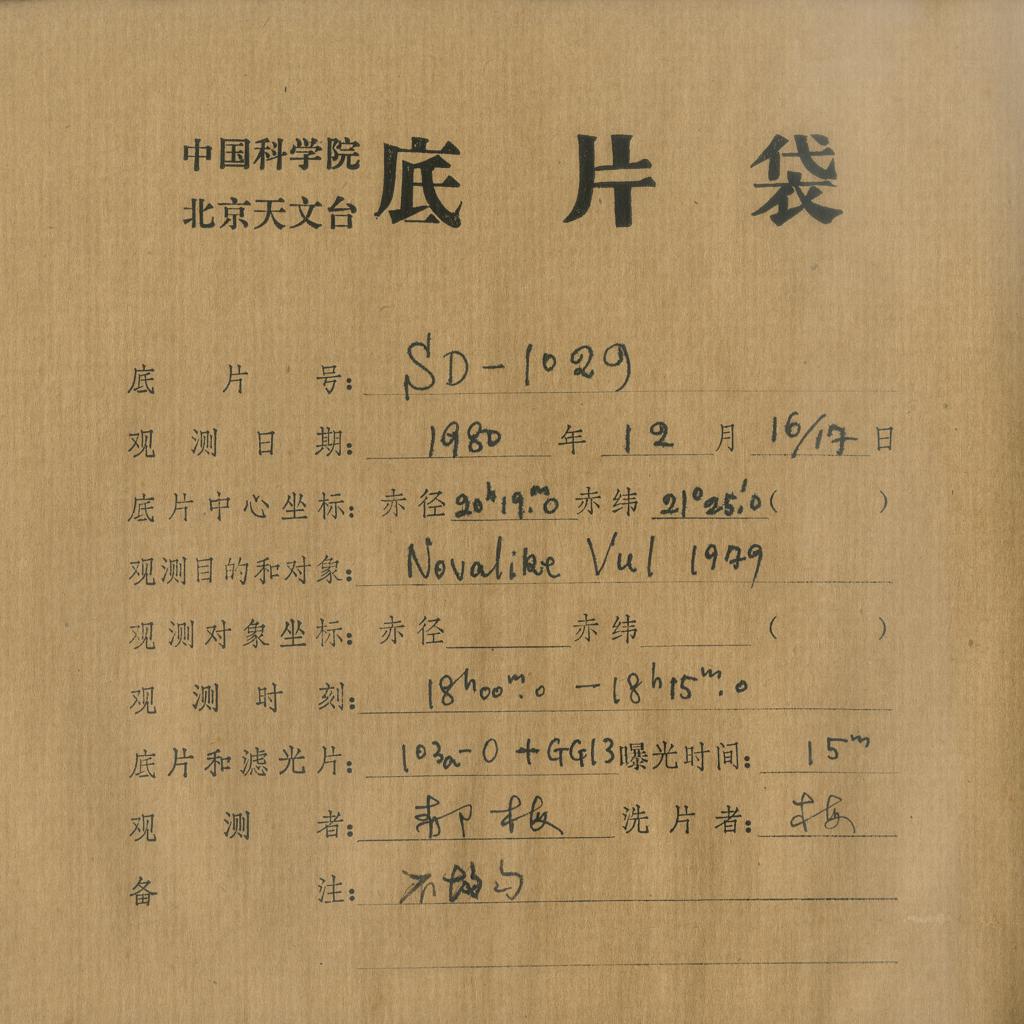 中国科学院
北京天文台 底片袋
底片号: SD-1029
观测日期: 1980年12月16/17日
底片中心坐标: 赤径20ʰ19.ᵐ0 赤纬21°25.′0( )
观测目的和对象: Novalike Vul 1979
观测对象坐标: 赤径 赤纬 ( )
观测时刻: 18ʰ00ᵐ.0 - 18ʰ15ᵐ.0
底片和滤光片: 103a-O + GG13 曝光时间: 15ᵐ
观测者: 洗片者: 梅
备注: 不均匀